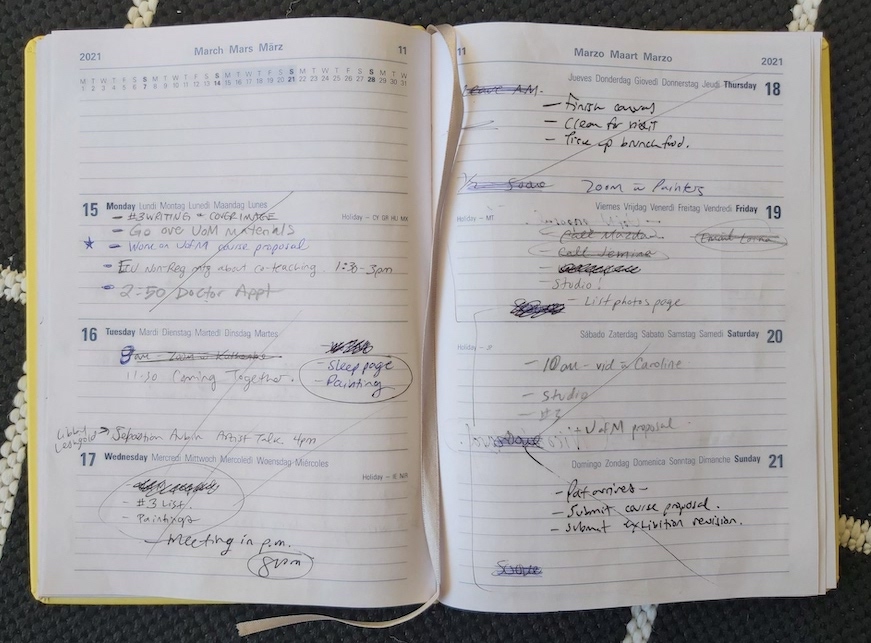 2021 March Mars März 11
M T W T F S S M T W T F S S M T W T F S S M T W T F S S M T W
1 2 3 4 5 6 7 8 9 10 11 12 13 14 15 16 17 18 19 20 21 22 23 24 25 26 27 28 29 30 31
15 Monday Lundi Montag Lunedì Maandag Lunes
Holiday – CY GR HU MX
- #3 WRITING - COVER IMAGE
- Go over UoM MATERIALS
- Work on UofM course proposal
- EU Non-Reg mtg about co-teaching. 1:30-3pm
- 2:50 Doctor Appt
16 Tuesday Mardi Dienstag Martedì Dinsdag Martes
9am - Zoom
- Sleep page
11-30 Coming Together.
- Painting
Sebastian Artist Talk 4pm
17 Wednesday Mercredi Mittwoch Mercoledì Woensdag Miércoles
Holiday – IE N/IR
- #3 List.
- Paintings
- Meeting in p.m.
8pm
11 Marzo Maart Marzo 2021
Jueves Donderdag Giovedì Donnerstag Jeudi Thursday 18
A.M.
- Finish canvas
- Clean for visit
- Pick up brunch food.
Zoom w Painters
Viernes Vrijdag Venerdì Freitag Vendredi Friday 19
Holiday – MT
- Call
- Call Jemine
- Studio!
- List photos page
Sábado Zaterdag Sabato Samstag Samedi Saturday 20
Holiday – JP
- 10am - vid w Caroline
- Studio
- #3
UofM proposal
Domingo Zondag Domenica Sonntag Dimanche Sunday 21
- Pat arrives -
- Submit course proposal.
- submit exhibition revision.